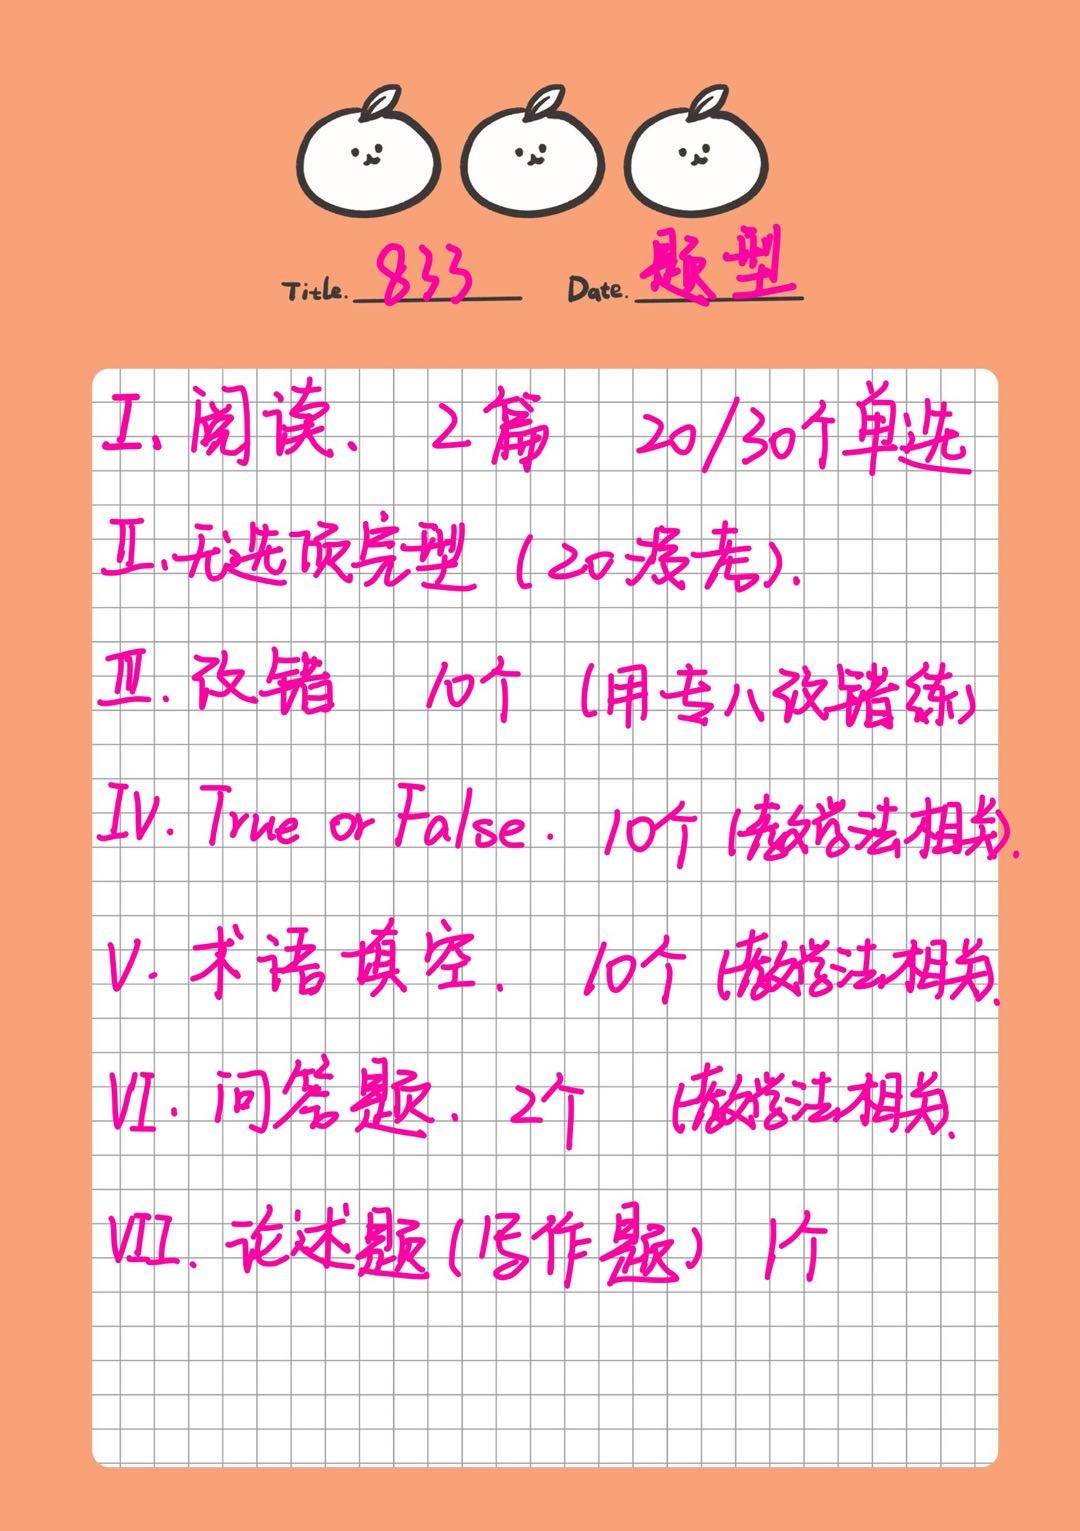 Title. 833 Date. 题型
I. 阅读. 2篇 20/30个单选
II. 无选项完型 (20没考).
III. 改错 10个 (用专八改错练)
IV. True or False. 10个 (教学法相关).
V. 术语填空. 10个 (教学法相关.
VI. 问答题. 2个 (教学法相关.
VII. 论述题 (写作题) 1个